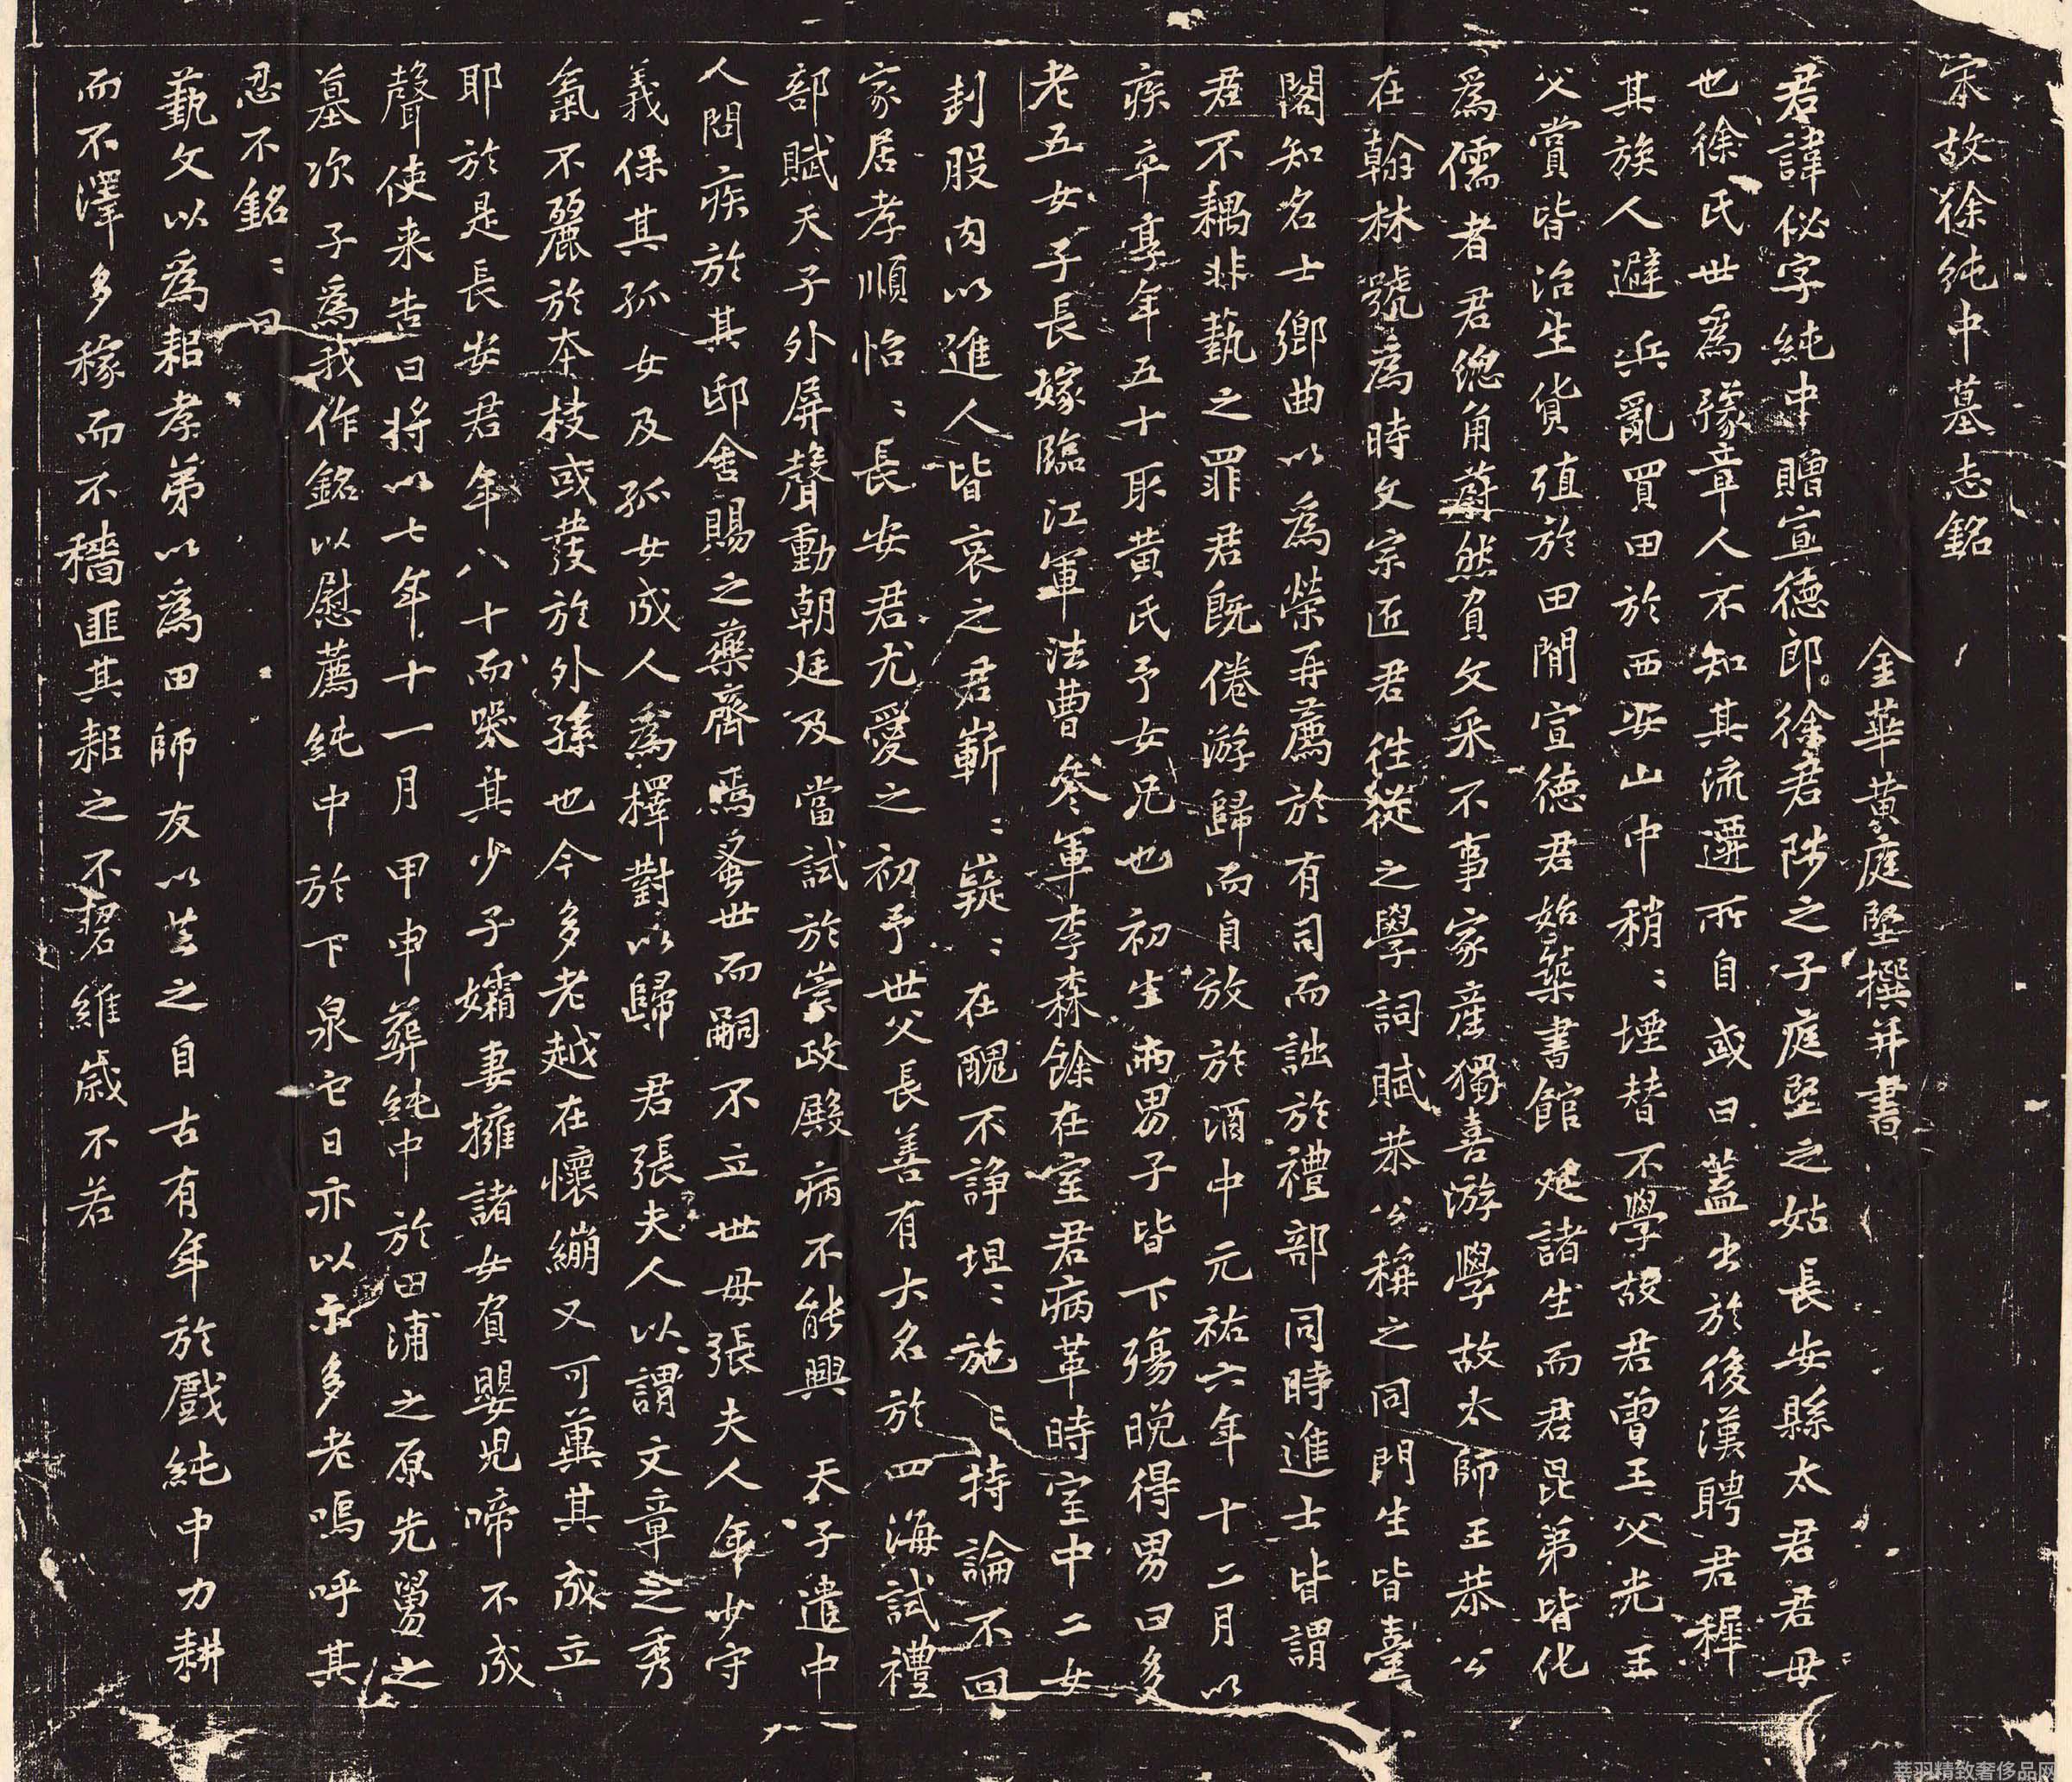 宋故徐純中墓志銘
金華黃庭堅撰并書
君諱佖字純中贈宣德郎徐君陟之子庭堅之姑長安縣太君君母
也徐氏世爲豫章人不知其流遷所自或曰蓋出於後漢聘君穉
其族人避兵亂買田於西安山中稍〻堙替不學故君曾王父光王
父賞皆治生貨殖於田間宣德君始築書館延諸生而君昆弟皆化
爲儒者君總角蔚然有文采不事家產獨喜游學故太師王恭公
在翰林號爲時文宗匠君往從之學詞賦恭公稱之同門生皆臺
閣知名士鄉曲以爲榮再薦於有司而詘於禮部同時進士皆謂
君不耦非藝之罪君既倦游歸而自放於酒中元祐六年十二月以
疾卒享年五十取黃氏予女兄也初生兩男子皆下殤晚得男曰多
老五女子長嫁臨江軍法曹參軍李森餘在室君病革時室中二女
刲股肉以進人皆哀之君嶄〻嶷〻在醜不諍坦〻施〻持論不回
家居孝順怡〻長安君尤愛之初予世父長善有大名於四海試禮
部賦天子外屏聲動朝廷及當試於崇政殿病不能興 天子遣中
人問疾於其邸舍賜之藥齊焉蚤世而嗣不立世母張夫人年少守
義保其孤女及孤女成人爲擇對以歸 君張夫人以謂文章之秀
氣不麗於本枝或發於外孫也今多老越在懷繃又可冀其成立
耶於是長安君年八十而哭其少子孀妻擁諸女負嬰兒啼不成
聲使来告曰將以七年十一月 甲申葬純中於田浦之原先舅之
墓次子爲我作銘以慰薦純中於下泉它日亦以示多老嗚呼其
忍不銘〻曰
藝文以爲耜孝弟以爲田師友以芸之自古有年於戲純中力耕
而不澤多稼而不穡匪其耜之不碧維歲不若